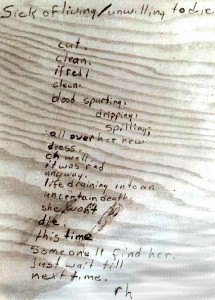 Sick of living / unwilling to die
cut.
clean.
if red
clean.
blood spurting,
dripping,
spilling,
all over her new
dress.
oh well,
it was red
anyway.
life draining into an
uncertain death.
she won't
die
this time
Someone'll find her.
Just wait till
next time.
rh